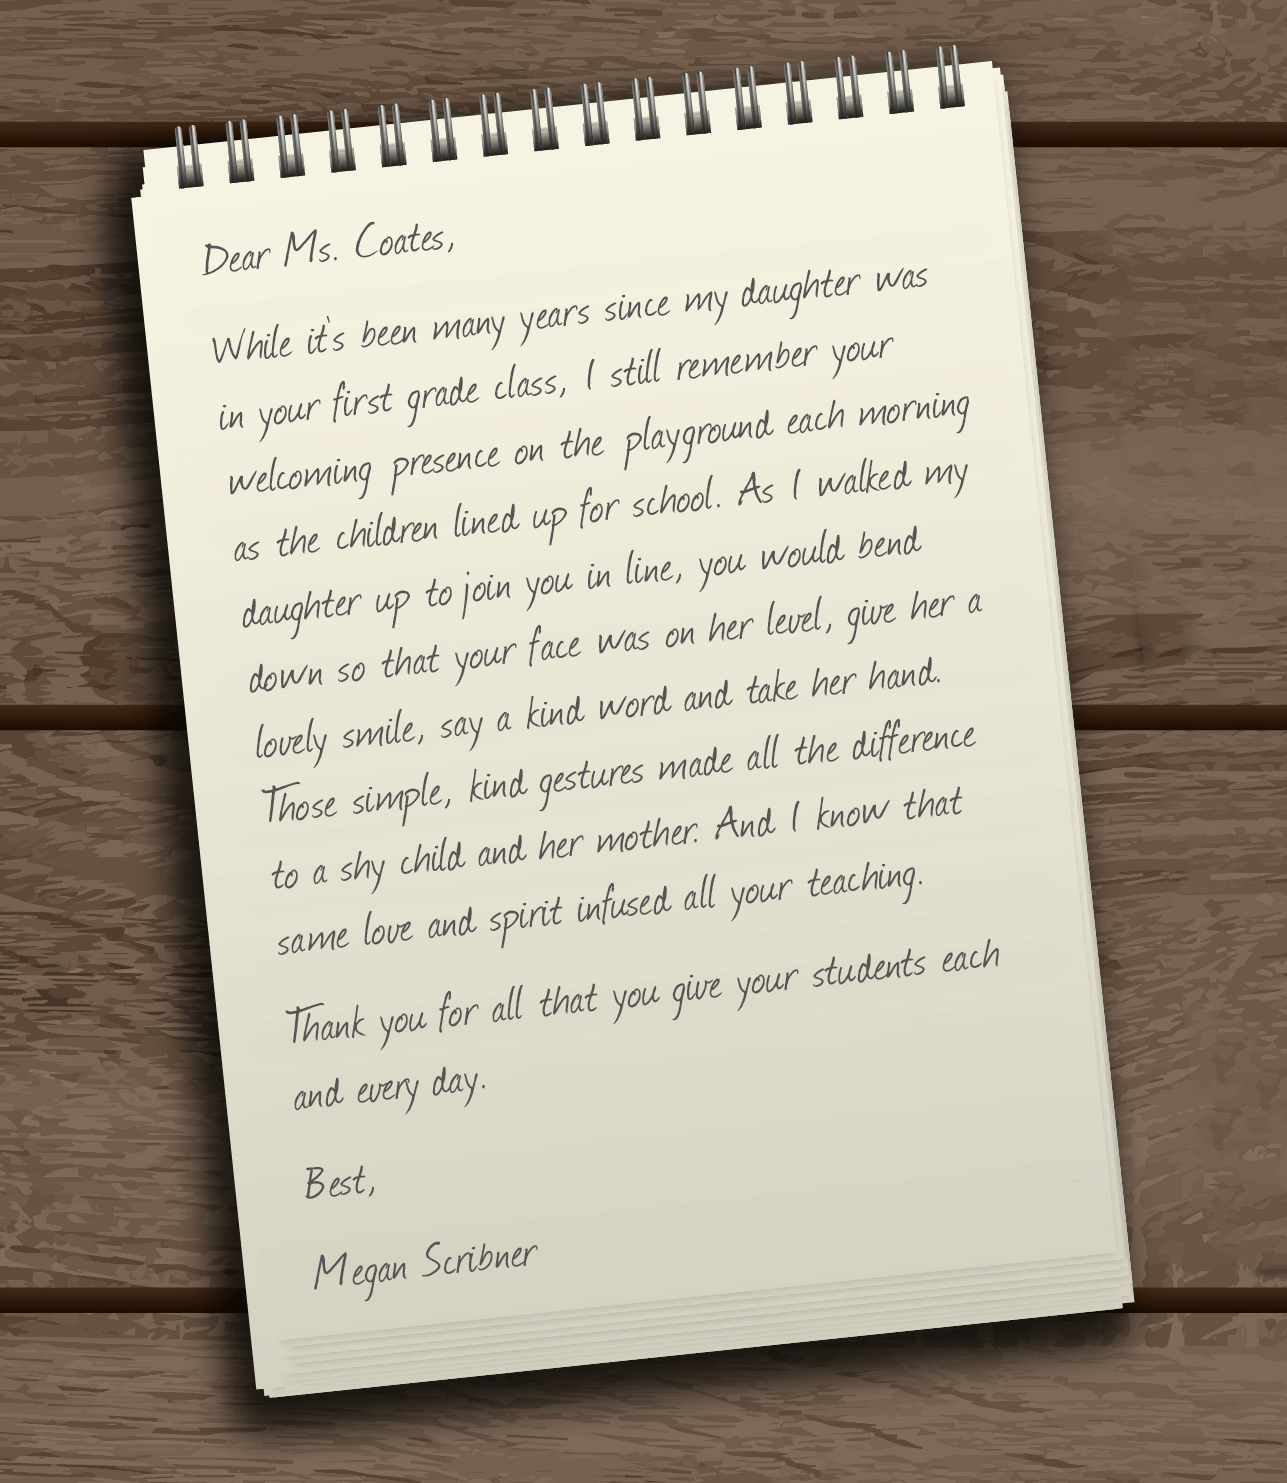 Dear Ms. Coates,
While it's been many years since my daughter was
in your first grade class, I still remember your
welcoming presence on the playground each morning
as the children lined up for school. As I walked my
daughter up to join you in line, you would bend
down so that your face was on her level, give her a
lovely smile, say a kind word and take her hand.
Those simple, kind gestures made all the difference
to a shy child and her mother. And I know that
same love and spirit infused all your teaching.
Thank you for all that you give your students each
and every day.
Best,
Megan Scribner